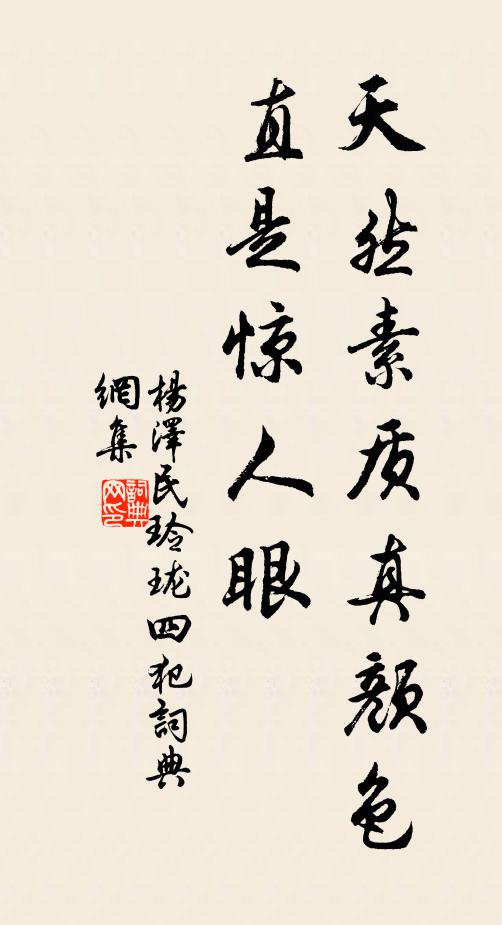 天然素质真颜色
直是惊人眼
楊澤民玲珑四犯詞典
網集
詞典
网印